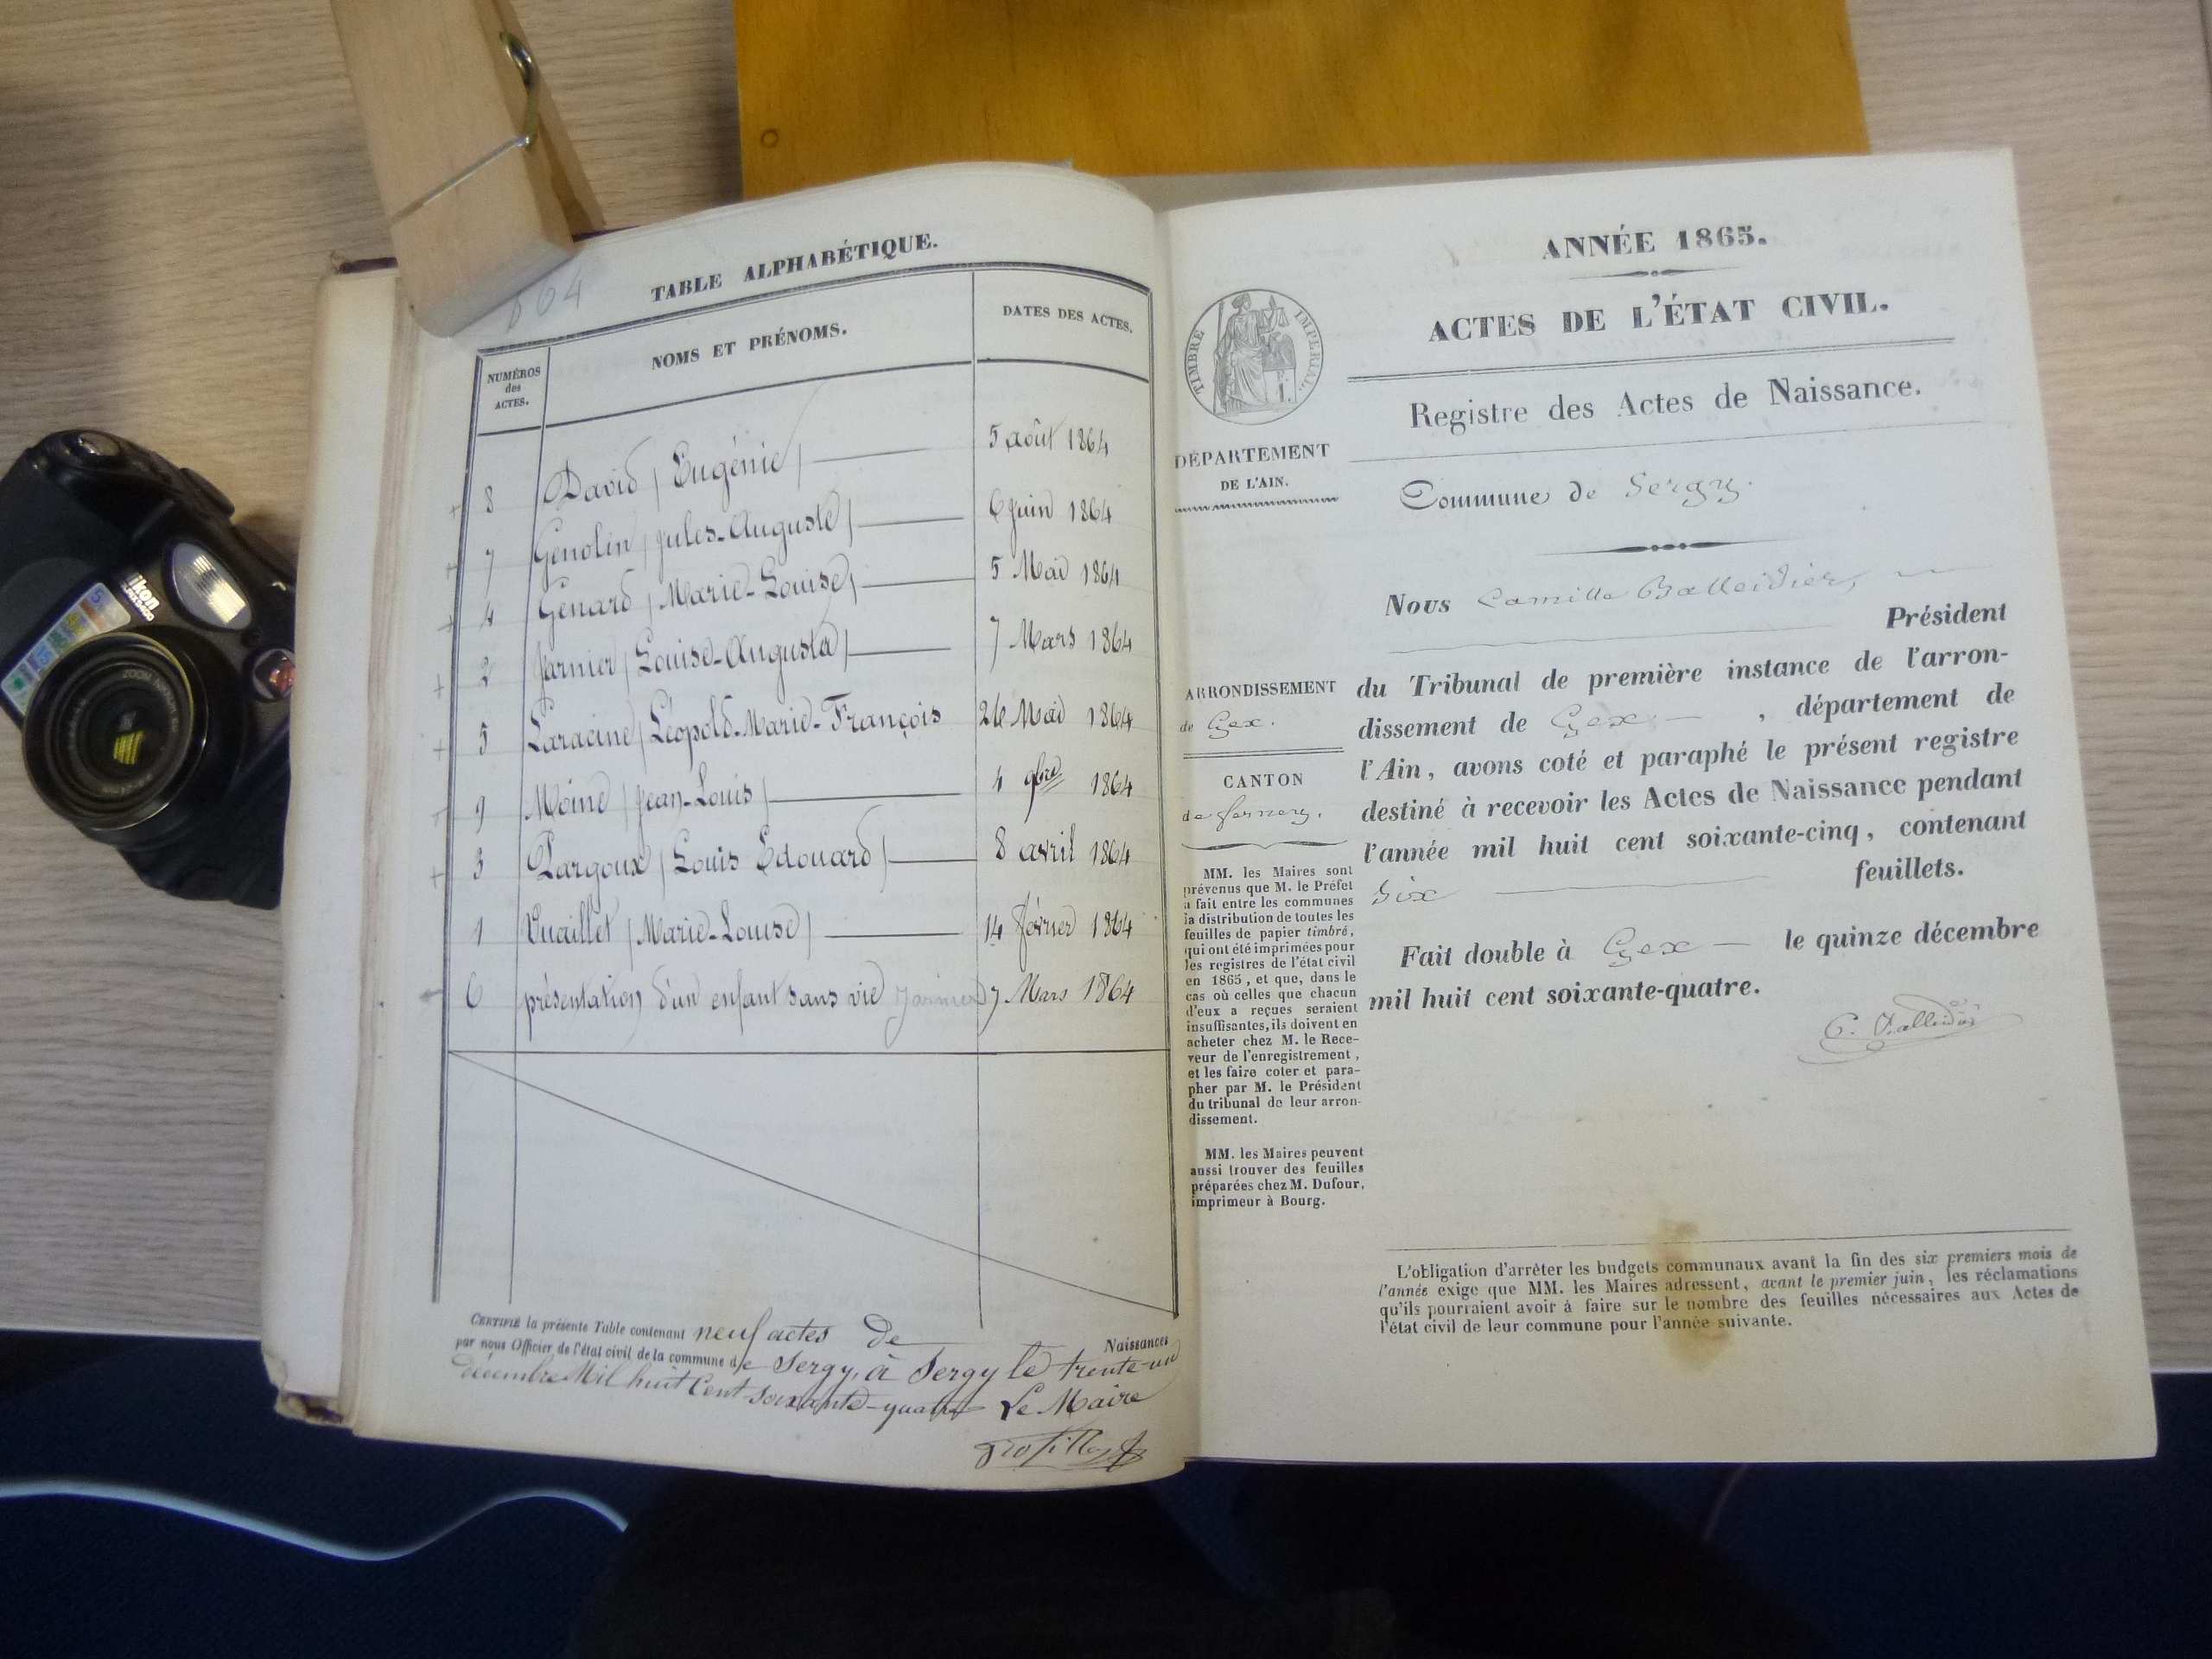 864
TABLE ALPHABÉTIQUE.
NUMÉROS des ACTES. NOMS ET PRÉNOMS. DATES DES ACTES.
8 David / Eugénie / 5 août 1864
7 Genolin / Jules-Auguste / 6 Juin 1864
4 Genard / Marie-Louise / 5 Mai 1864
2 Jarnier / Louise-Augusta / 7 Mars 1864
5 Laracine / Léopold-Marie-François 26 Mai 1864
9 Moine / Jean-Louis / 4 9bre 1864
3 Pargoux / Louis Edouard / 8 avril 1864
1 Vuaillet / Marie-Louise / 14 février 1864
6 présentation d'un enfant sans vie Jarnier 7 Mars 1864
CERTIFIÉ la présente Table contenant neuf actes de Naissances
par nous Officier de l'état civil de la commune de Sergy, à Sergy le trente-un
décembre Mil huit Cent soixante-quatre Le Maire
ANNÉE 1865.
ACTES DE L'ÉTAT CIVIL.
TIMBRE IMPÉRIAL.
Registre des Actes de Naissance.
DÉPARTEMENT
DE L'AIN.
Commune de Sergy.
Nous Camille Balleidier,
Président
ARRONDISSEMENT
de Gex.
CANTON
de Ferney.
du Tribunal de première instance de l'arron-
dissement de Gex, département de
l'Ain, avons coté et paraphé le présent registre
destiné à recevoir les Actes de Naissance pendant
l'année mil huit cent soixante-cinq, contenant
six feuillets.
Fait double à Gex le quinze décembre
mil huit cent soixante-quatre.
C. Balleidier
MM. les Maires sont
prévenus que M. le Préfet
a fait entre les communes
la distribution de toutes les
feuilles de papier timbré,
qui ont été imprimées pour
les registres de l'état civil
en 1865, et que, dans le
cas où celles que chacun
d'eux a reçues seraient
insuffisantes, ils doivent en
acheter chez M. le Rece-
veur de l'enregistrement,
et les faire coter et para-
pher par M. le Président
du tribunal de leur arron-
dissement.
MM. les Maires peuvent
aussi trouver des feuilles
préparées chez M. Dufour,
imprimeur à Bourg.
L'obligation d'arrêter les budgets communaux avant la fin des six premiers mois de
l'année exige que MM. les Maires adressent, avant le premier juin, les réclamations
qu'ils pourraient avoir à faire sur le nombre des feuilles nécessaires aux Actes de
l'état civil de leur commune pour l'année suivante.